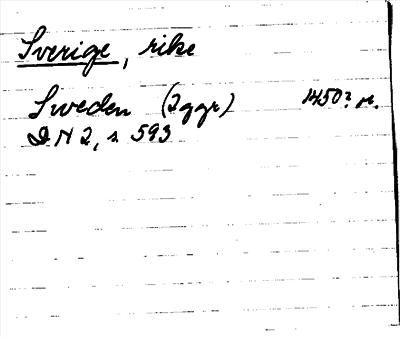 Sverige, rike
Sweden (2ggr) 1450? or.
DN 2, s 593